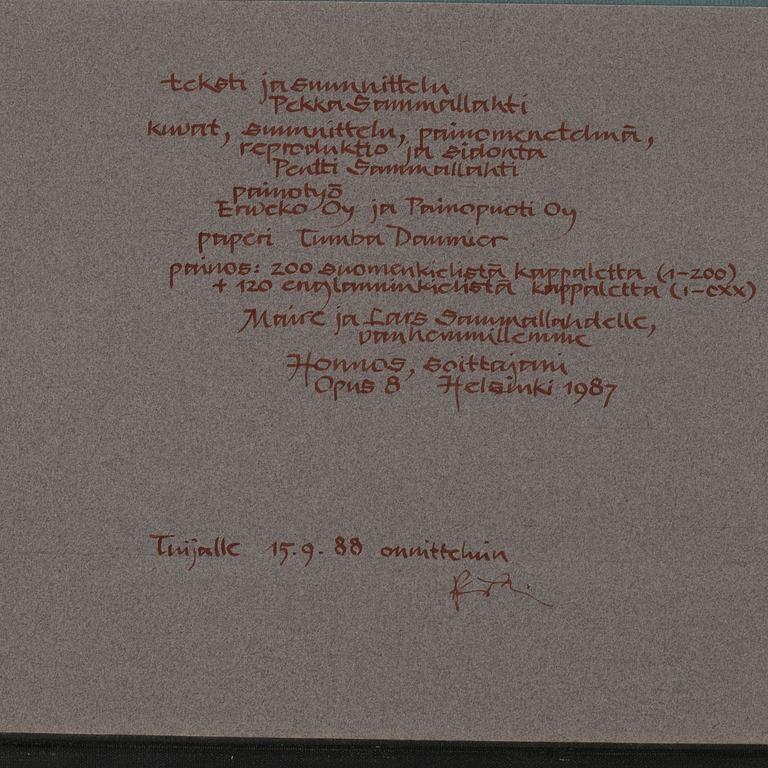 teksti ja suunnittelu
Pekka Sammallahti
kuvat, suunnittelu, painomenetelmä,
reproduktio ja sidonta
Pentti Sammallahti
painotyö
Erweko Oy ja Painopuoti Oy
paperi Tumba Daumier
painos: 200 suomenkielistä kappaletta (1-200)
+ 120 englanninkielistä kappaletta (I-CXX)
Maire ja Lars Sammallahdelle,
vanhemmillemme
Honnos, soittajani
Opus 8 Helsinki 1987
Tuijalle 15.9.88 onnitteluin